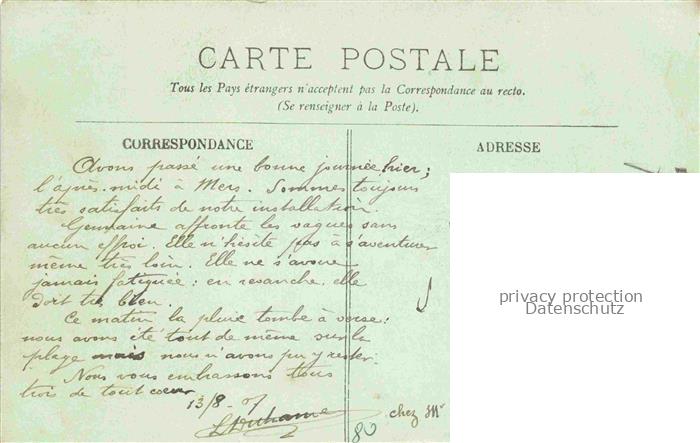 CARTE POSTALE
Tous les Pays étrangers n'acceptent pas la Correspondance au recto.
(Se renseigner à la Poste).
CORRESPONDANCE
Avons passé une bonne journée hier;
l'après-midi à Mers. Sommes toujours
très satisfaits de notre installation.
Germaine affronte les vagues sans
aucun effroi. Elle n'hésite pas à s'aventurer
même très loin. Elle ne s'avoue
jamais fatiguée; en revanche, elle
dort très bien.
Ce matin la pluie tombe à verse;
nous avons été tout de même sur la
plage mais nous n'avons pu y rester.
Nous vous embrassons tous
trois de tout coeur
13/8-07
LDuhamel
ADRESSE
chez Mr
80
privacy protection
Datenschutz